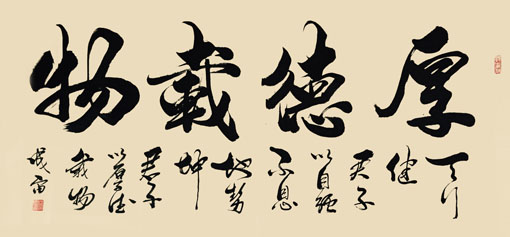 厚德載物
天行
健
君子
以自强
不息
地勢
坤
君子
以厚德
載物